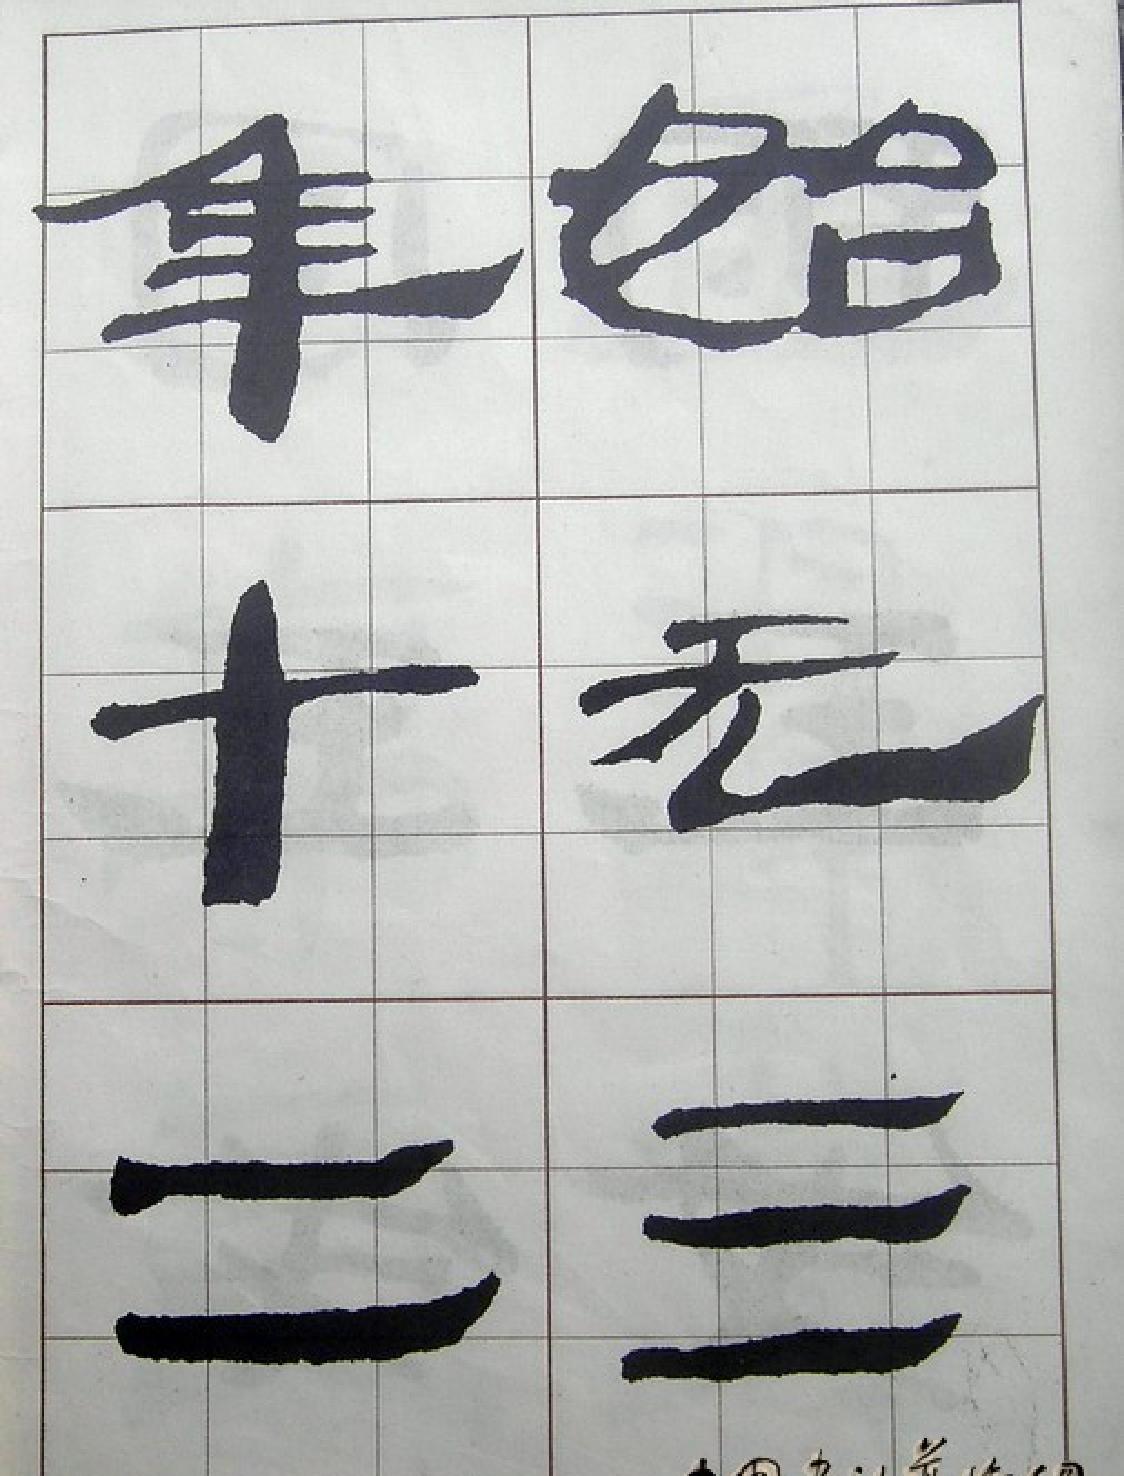 始元三
年十二